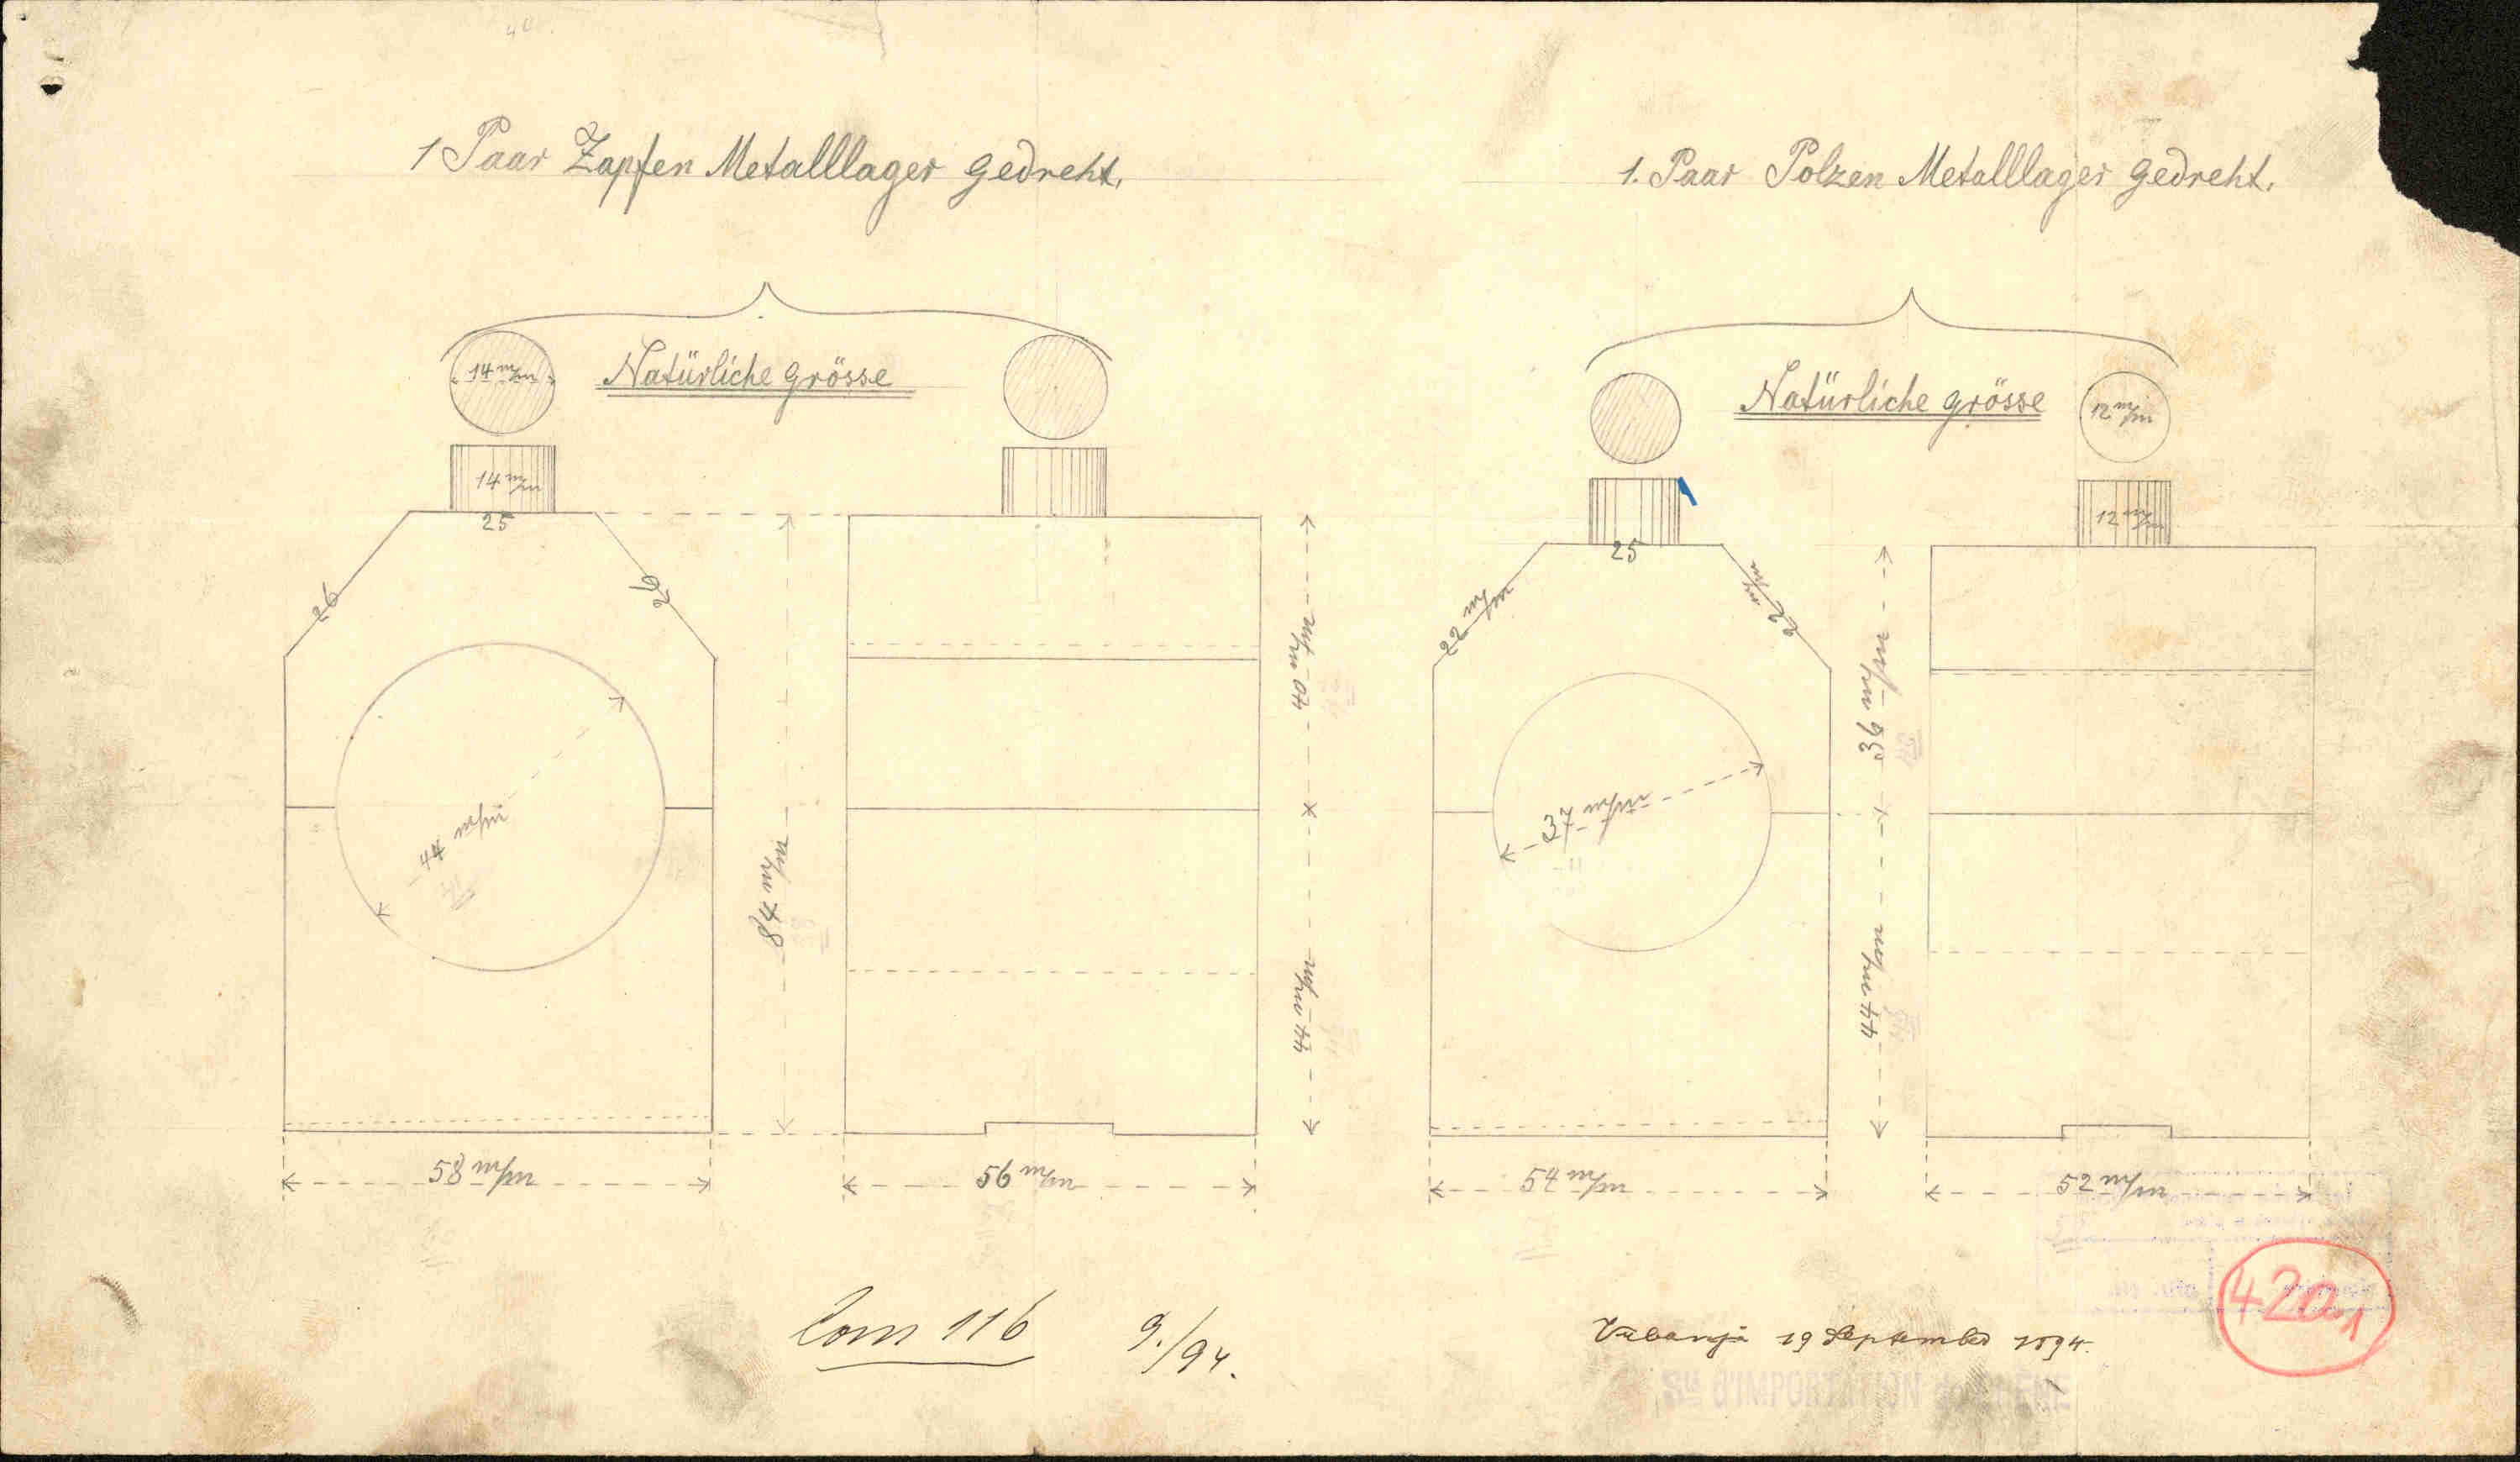 1 Paar Zapfen Metalllager gedreht.
1. Paar Polzen Metalllager gedreht.
14 m/m
Natürliche grösse
Natürliche grösse
12 m/m
14 m/m
12 m/m
25
25
26
26
22 m/m
22 m/m
40 m/m
36 m/m
44 m/m
37 m/m
84 m/m
44 m/m
44 m/m
58 m/m
56 m/m
54 m/m
52 m/m
Com 116 9./94.
19 September 1894.
42a1
D'IMPORTATION